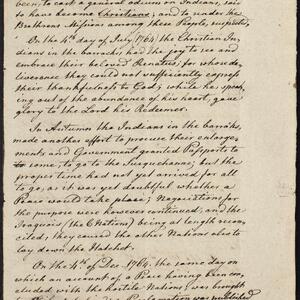 been, to cast a general odium on Indians, said
to have become Christians; and to render the
Brethrens Mission among these People, suspected,
On the 4th day of July, 1764, the Christian In-
dians in the barracks, had the joy to see and
embrace their beloved Renatus; for whose de-
liverance they could not sufficiently express
their thankfulness to God; while he speak-
ing out of the abundance of his heart, gave
glory to the Lord his Redeemer.
In Autumn the Indians in the barracks,
made another effort to procure their enlarge-
ment; and Government granted Passports to
to some, to go to the Susquehanna; but the
proper time had not yet arrived for all
to go, as it was yet doubtful whether a
Peace would take place; Negotiations for
the purpose were however continued; and the
Iroquois (the 6 Nations) being at length recon-
ciled, they caused the other Nations also to
lay down the Hatchet.
On the 4th of Dec. 1764, the same day on
which an account of a Peace having been con-
cluded with the hostile Nations, was brought
Proclamation was published